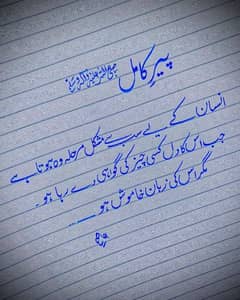 پیرِ کامل صلی اللہ علیہ وآلہ وسلم
انسان کے لیے سب سے مشکل مرحلہ وہ ہوتا ہے
جب اس کا دل کسی چیز کی گواہی دے رہا ہو۔
مگر اس کی زبان خاموش ہو ـــــ